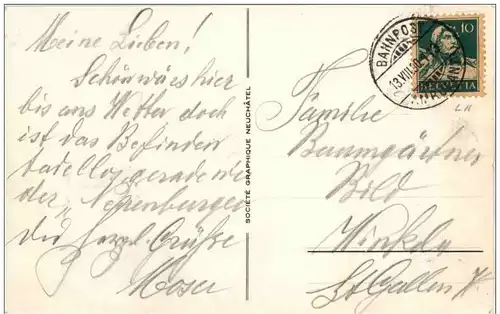 Meine Lieben!
Schön wärs hier
bis ans Wetter doch
ist das Befinden
tadellos gerade wie
der "Neuenburger
Moser
SOCIÉTÉ GRAPHIQUE NEUCHÂTEL
BAHNPOST
13.VIII.
10
HELVETIA
LH
Familie
Baumgärtner
Bild
Winkeln
St. Gallen